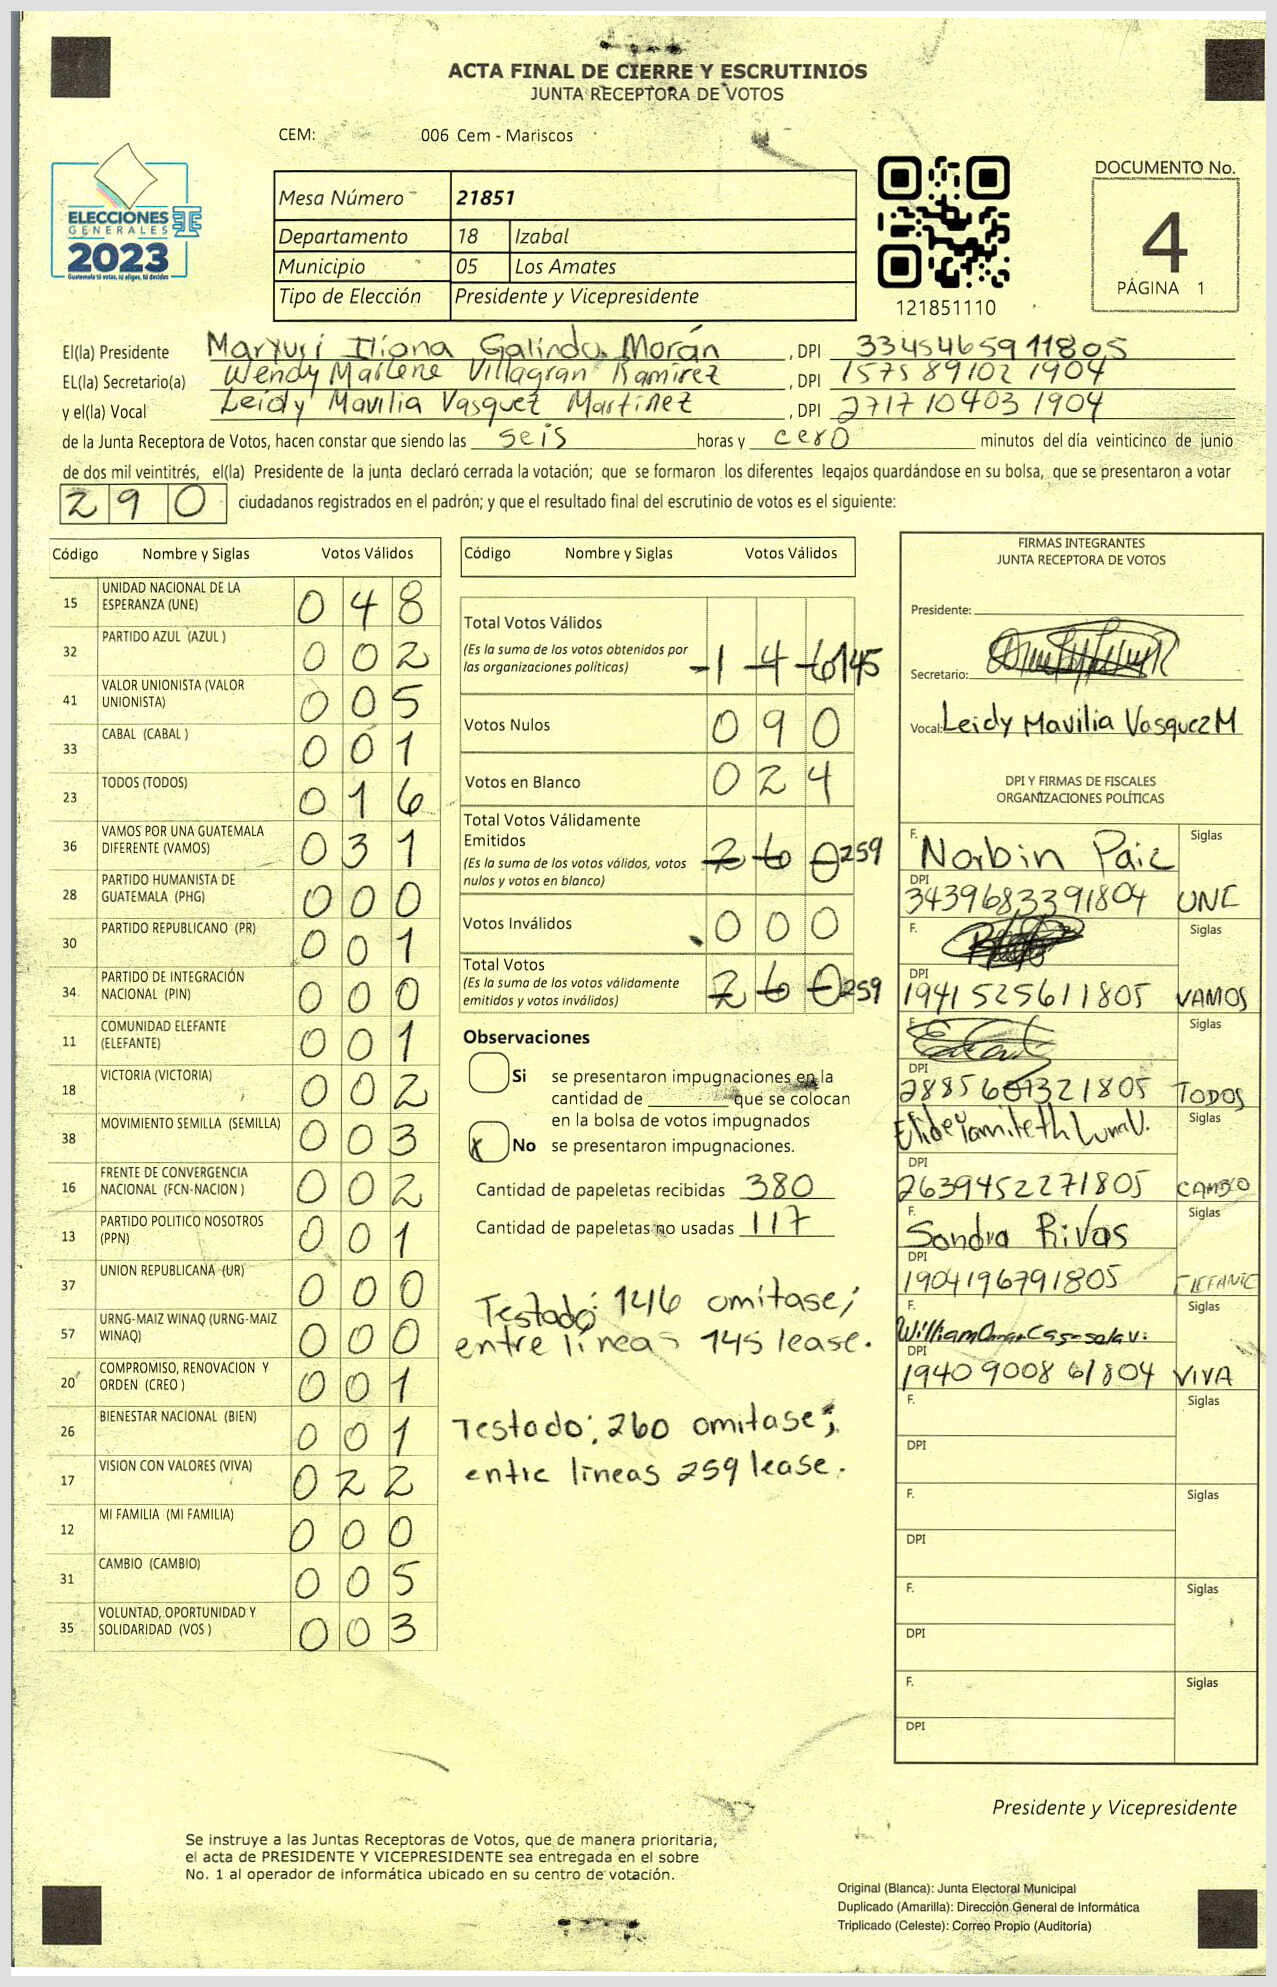 ACTA FINAL DE CIERRE Y ESCRUTINIOS
JUNTA RECEPTORA DE VOTOS
CEM: 006 Cem - Mariscos
ELECCIONES
GENERALES
2023
Guatemala tú votas, tú eliges, tú decides
Mesa Número 21851
Departamento 18 Izabal
Municipio 05 Los Amates
Tipo de Elección Presidente y Vicepresidente
121851110
DOCUMENTO No.
4
PÁGINA 1
El(la) Presidente Maryuri Iliana Galindo Morán , DPI 3345465911805
EL(la) Secretario(a) Wendy Marlene Villagran Ramirez , DPI 1575891021904
y el(la) Vocal Leidy Mavilia Vasquez Martinez , DPI 2717104031904
de la Junta Receptora de Votos, hacen constar que siendo las seis horas y cero minutos del día veinticinco de junio
de dos mil veintitrés, el(la) Presidente de la junta declaró cerrada la votación; que se formaron los diferentes legajos quardándose en su bolsa, que se presentaron a votar
290 ciudadanos registrados en el padrón; y que el resultado final del escrutinio de votos es el siguiente:
Código Nombre y Siglas Votos Válidos
15 UNIDAD NACIONAL DE LA ESPERANZA (UNE) 048
32 PARTIDO AZUL (AZUL ) 002
41 VALOR UNIONISTA (VALOR UNIONISTA) 005
33 CABAL (CABAL ) 001
23 TODOS (TODOS) 016
36 VAMOS POR UNA GUATEMALA DIFERENTE (VAMOS) 031
28 PARTIDO HUMANISTA DE GUATEMALA (PHG) 000
30 PARTIDO REPUBLICANO (PR) 001
34 PARTIDO DE INTEGRACIÓN NACIONAL (PIN) 000
11 COMUNIDAD ELEFANTE (ELEFANTE) 001
18 VICTORIA (VICTORIA) 002
38 MOVIMIENTO SEMILLA (SEMILLA) 003
16 FRENTE DE CONVERGENCIA NACIONAL (FCN-NACION ) 002
13 PARTIDO POLITICO NOSOTROS (PPN) 001
37 UNION REPUBLICANA (UR) 000
57 URNG-MAIZ WINAQ (URNG-MAIZ WINAQ) 000
20 COMPROMISO, RENOVACION Y ORDEN (CREO ) 001
26 BIENESTAR NACIONAL (BIEN) 001
17 VISION CON VALORES (VIVA) 022
12 MI FAMILIA (MI FAMILIA) 000
31 CAMBIO (CAMBIO) 005
35 VOLUNTAD, OPORTUNIDAD Y SOLIDARIDAD (VOS ) 003
Código Nombre y Siglas Votos Válidos
Total Votos Válidos
(Es la suma de los votos obtenidos por
las organizaciones políticas) 146 145
Votos Nulos 090
Votos en Blanco 024
Total Votos Válidamente
Emitidos
(Es la suma de los votos válidos, votos
nulos y votos en blanco) 260 259
Votos Inválidos 000
Total Votos
(Es la suma de los votos válidamente
emitidos y votos inválidos) 260 259
Observaciones
Si se presentaron impugnaciones en la
cantidad de ________ que se colocan
en la bolsa de votos impugnados
X No se presentaron impugnaciones.
Cantidad de papeletas recibidas 380
Cantidad de papeletas no usadas 117
Testado: 146 omitase;
entre líneas 145 lease.
Testado; 260 omitase;
entre lineas 259 lease.
FIRMAS INTEGRANTES
JUNTA RECEPTORA DE VOTOS
Presidente:
Secretario:
Vocal: Leidy Mavilia Vasquez M
DPI Y FIRMAS DE FISCALES
ORGANIZACIONES POLÍTICAS
F. Norbin Paiz Siglas
DPI 3439683391804 UNE
F. Siglas
DPI 1941525611805 VAMOS
F. Siglas
DPI TODOS
Siglas
DPI 2639452271805 CAMBIO
F. Sandra Rivas Siglas
DPI 1904196791805 ELEFANTE
F. Siglas
DPI 1940900861804 VIVA
F. Siglas
DPI
F. Siglas
DPI
F. Siglas
DPI
F. Siglas
DPI
Presidente y Vicepresidente
Se instruye a las Juntas Receptoras de Votos, que de manera prioritaria,
el acta de PRESIDENTE Y VICEPRESIDENTE sea entregada en el sobre
No. 1 al operador de informática ubicado en su centro de votación.
Original (Blanca): Junta Electoral Municipal
Duplicado (Amarilla): Dirección General de Informática
Triplicado (Celeste): Correo Propio (Auditoría)